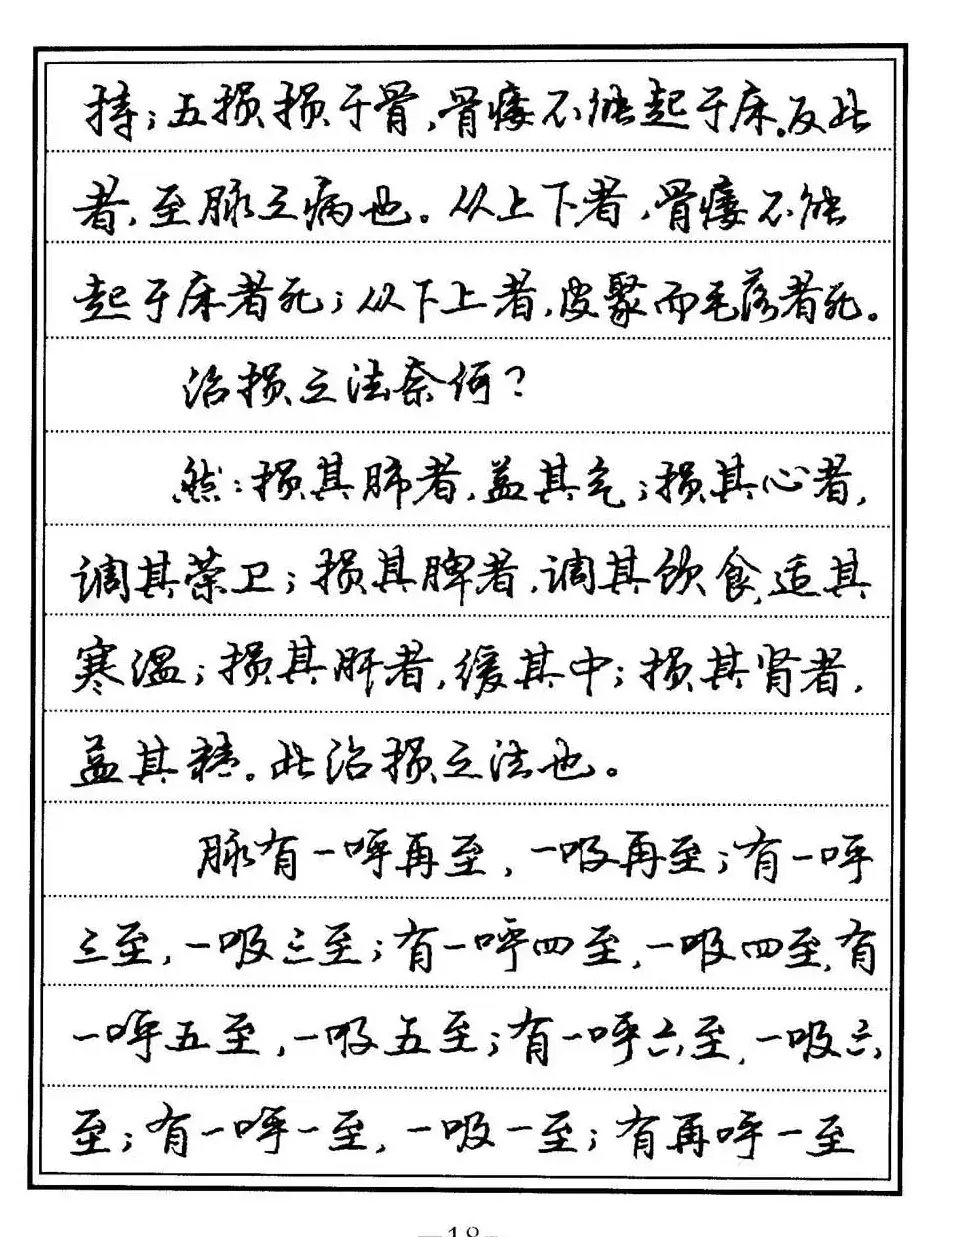 持；五损损于骨，骨痿不能起于床。反此
者，至脉之病也。从上下者，骨痿不能
起于床者死；从下上者，皮聚而毛落者死。
治损之法奈何？
然：损其肺者，益其气；损其心者，
调其荣卫；损其脾者，调其饮食，适其
寒温；损其肝者，缓其中；损其肾者，
益其精。此治损之法也。
脉有一呼再至，一吸再至；有一呼
三至，一吸三至；有一呼四至，一吸四至，有
一呼五至，一吸五至；有一呼六至，一吸六
至；有一呼一至，一吸一至；有再呼一至
—18—